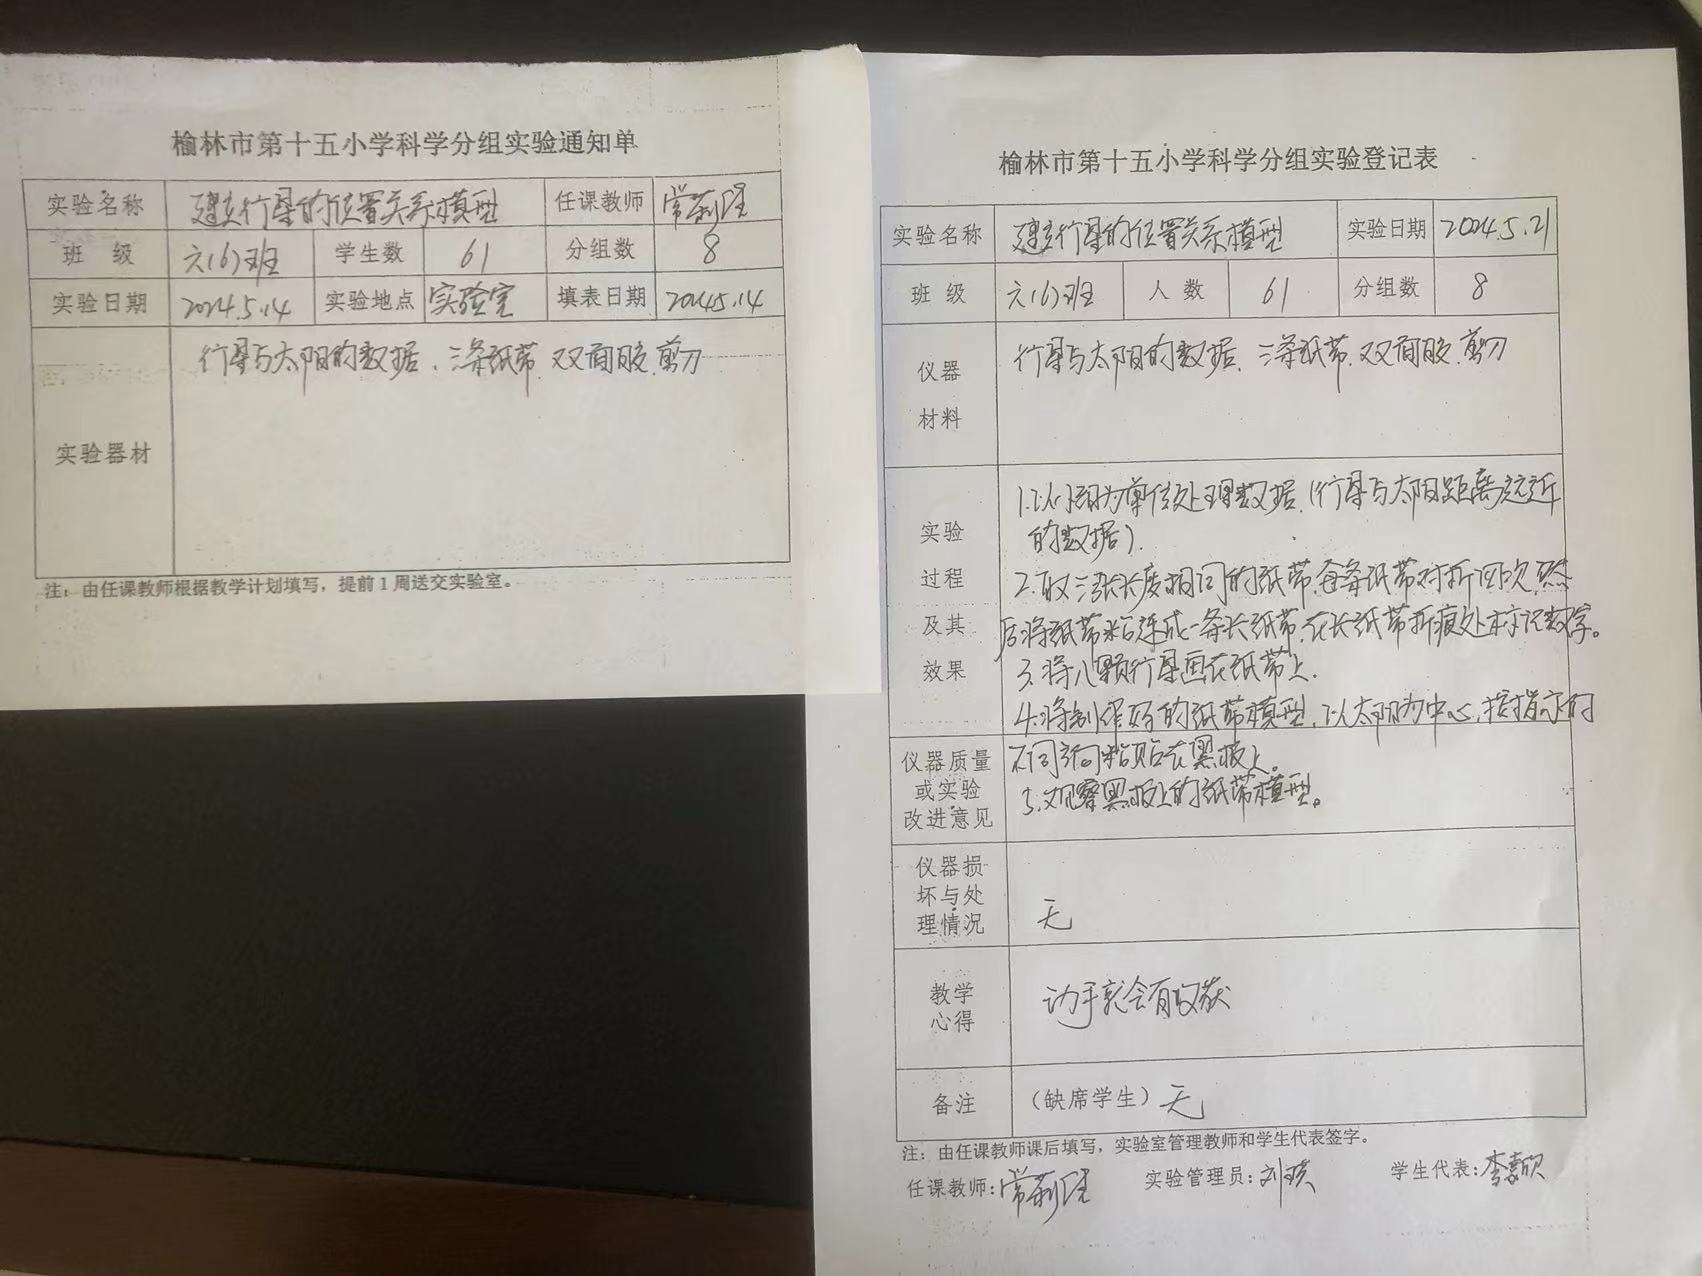 榆林市第十五小学科学分组实验通知单
实验名称 建立行星的位置关系模型 任课教师
班 级 六(6)班 学生数 61 分组数 8
实验日期 2024.5.14 实验地点 实验室 填表日期 2024.5.14
实验器材 行星与太阳的数据、三条纸带、双面胶、剪刀
注：由任课教师根据教学计划填写，提前1周送交实验室。
榆林市第十五小学科学分组实验登记表
实验名称 建立行星的位置关系模型 实验日期 2024.5.21
班 级 六(6)班 人 数 61 分组数 8
仪器
材料
行星与太阳的数据、三条纸带、双面胶、剪刀
实验
过程
及其
效果
1.以小组为单位处理数据.(行星与太阳距离远近
的数据).
2.取三张长度相同的纸带,每条纸带对折四次,然
后将纸带粘连成一条长纸带,在长纸带折痕处标记数字。
3.将八颗行星画在纸带上.
4.将制作好的纸带模型,以太阳为中心,按指示的
不同方向粘贴在黑板上。
5.观察黑板上的纸带模型。
仪器质量
或实验
改进意见
仪器损
坏与处
理情况
无
教学
心得
动手就会有收获
备注 （缺席学生）无
注：由任课教师课后填写，实验室管理教师和学生代表签字。
任课教师: 实验管理员: 学生代表:李嘉欣